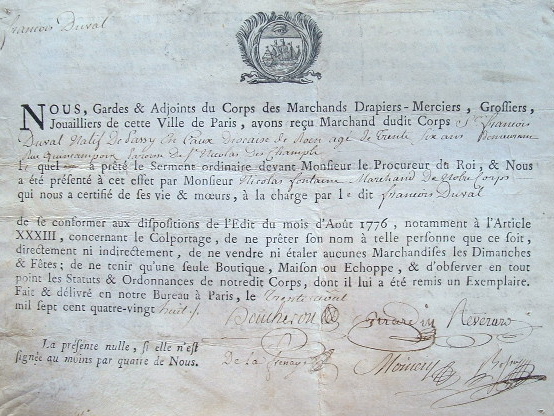 François Duval
NOUS, Gardes & Adjoints du Corps des Marchands Drapiers-Merciers, Grossiers,
Jouailliers de cette Ville de Paris, avons reçu Marchand dudit Corps Sr. François
Duval Natif De Sassy En Caux diocaise de Roen agé de Trente six ans Demeurant
Rue Quinquampoix Paroisse de St. Nicolas des Champs
Le quel a prêté le Serment ordinaire devant Monsieur le Procureur du Roi, & Nous
a été présenté à cet effet par Monsieur Nicolas Fontaine Marchand de Notre Corps
qui nous a certifié de ses vie & mœurs, à la charge par le dit François Duval
de se conformer aux dispositions de l'Edit du mois d'Août 1776, notamment à l'Article
XXXIII, concernant le Colportage, de ne prêter son nom à telle personne que ce soit,
directement ni indirectement, de ne vendre ni étaler aucunes Marchandises les Dimanches
& Fêtes; de ne tenir qu'une seule Boutique, Maison ou Echoppe, & d'observer en tout
point les Statuts & Ordonnances de notredit Corps, dont il lui a été remis un Exemplaire.
Fait & délivré en notre Bureau à Paris, le trente aout
mil sept cent quatre-vingt huit
Boucheron Girardin Reverard
La présente nulle, si elle n'est
signée au moins par quatre de Nous.
De la Frenaye Moinery